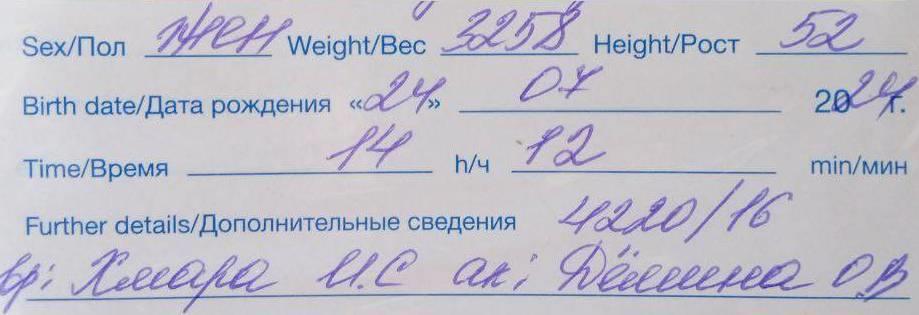 Sex/Пол жен Weight/Вес 3258 Height/Рост 52
Birth date/Дата рождения «24» 07 2024г.
Time/Время 14 h/ч 12 min/мин
Further details/Дополнительные сведения 4220/16
вр: Хмара И.С ак: Дёмина О.В